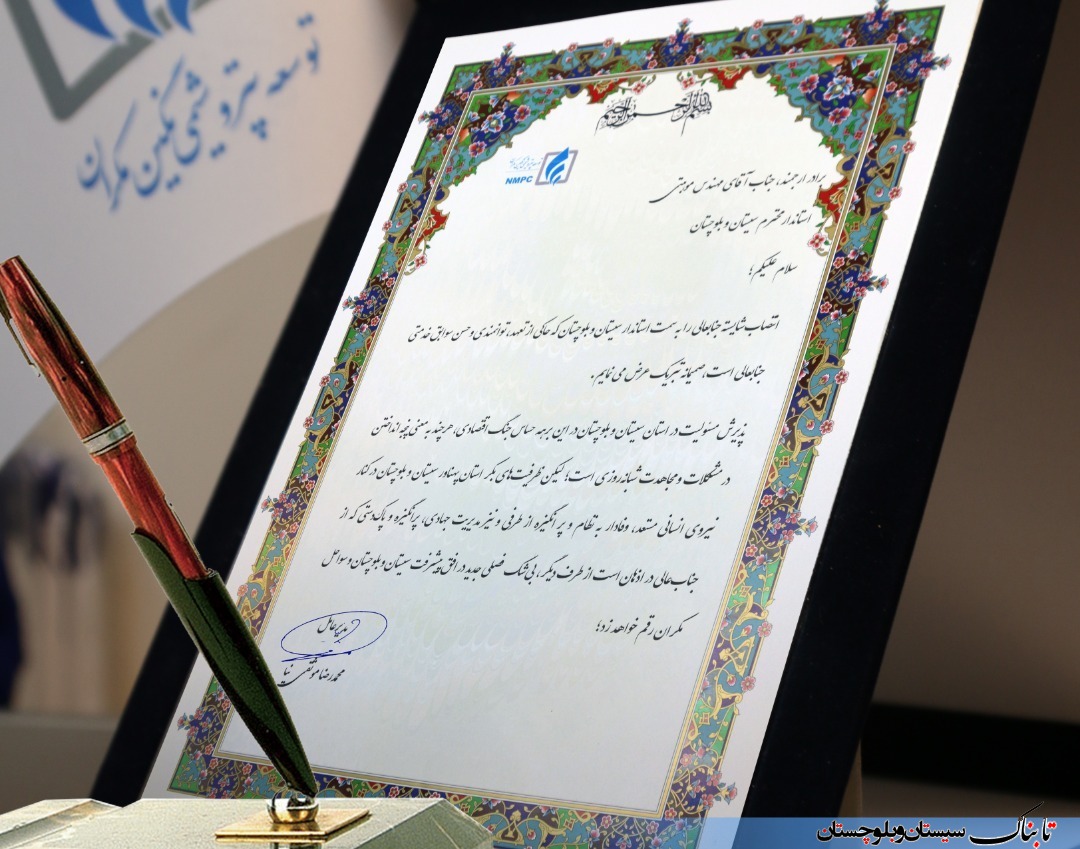 توسعه پتروشیمی نگین مکران
بسم الله الرحمن الرحیم
NMPC
برادر ارجمند، جناب آقای مهندس موهبتی
استاندار محترم سیستان و بلوچستان
سلام علیکم؛
انتصاب شایسته جنابعالی را به سمت استاندار سیستان و بلوچستان که حاکی از تعهد، توانمندی و حسن سوابق خدمتی
جنابعالی است، صمیمانه تبریک عرض می نمایم.
پذیرش مسئولیت در استان سیستان و بلوچستان در این برهه حساس جنگ اقتصادی، هرچند به معنی پنجه انداختن
در مشکلات و مجاهدت شبانه روزی است؛ لیکن ظرفیت های بکر استان پهناور سیستان و بلوچستان در کنار
نیروی انسانی مستعد، وفادار به نظام و پر انگیزه از طرفی و نیز مدیریت جهادی، پرانگیزه و پاک دستی که از
جناب عالی در اذهان است از طرف دیگر، بی شک فصلی جدید در افق پیشرفت سیستان و بلوچستان و سواحل
مکران رقم خواهد زد؛
مدیرعامل
محمدرضا موثقی نیا
تابناک سیستان و بلوچستان